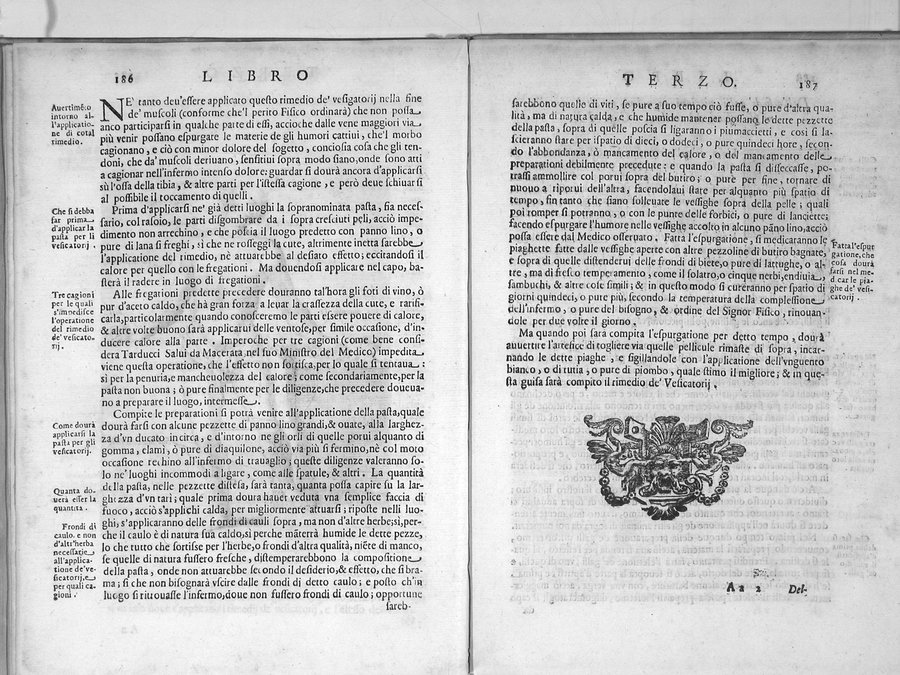 186 LIBRO
Auertimẽto
intorno al-
l'applicatio-
ne di cotal
rimedio.
NE' tanto deu'essere applicato questo rimedio de' vesigatorij nella fine
de' muscoli (conforme che'l perito Fisico ordinarà) che non possa
anco participarsi in qualche parte di essi, acciòche dalle vene maggiori via
più venir possano espurgate le materie de gli humori cattiui, che'l morbo
cagionano, e ciò con minor dolore del sogetto, conciosia cosa che gli ten-
doni, che da' muscoli deriuano, sensitiui sopra modo siano, onde sono atti
a cagionar nell'infermo intenso dolore: guardar si dourà ancora d'applicarsi
sù l'ossa della tibia, & altre parti per l'istessa cagione, e però deue schiuarsi
al possibile il toccamento di quelli.
Che si debba
far prima
d'applicar la
pasta per li
vesicatorij.
Prima d'applicarsi ne' già detti luoghi la sopranominata pasta, fia neces-
sario, col rasoio, le parti disgombrare da i sopra cresciuti peli, acciò impe-
dimento non arrechino, e che poscia il luogo predetto con panno lino, o
pure di lana si freghi, sì che ne rosseggi la cute, altrimente inetta sarebbe
l'applicatione del rimedio, nè attuarebbe al desiato effetto; eccitandosi il
calore per quello con le fregationi. Ma douendosi applicare nel capo, ba-
sterà il radere in luogo di fregationi.
Tre cagioni
per le quali
s'impedisce
l'operatione
del rimedio
de' vesicato-
rij.
Alle fregationi predette precedere douranno tal'hora gli foti di vino, ò
pur d'aceto caldo, che hà gran forza a leuar la crassezza della cute, e rarifi-
carla, particolarmente quando conosceremo le parti essere pouere di calore,
& altre volte buono sarà applicarui delle ventose, per simile occasione, d'in-
ducere calore alla parte. Imperoche per tre cagioni (come bene consi-
dera Tarducci Salui da Macerata nel suo Ministro del Medico) impedita
viene questa operatione, che l'effetto non sortisca, per lo quale si tentaua:
si per la penuria, e mancheuolezza del calore; come secondariamente, per la
pasta non buona; ò pure finalmente per le diligenze, che precedere doueua-
no a preparare il luogo, intermesse.
Come dourà
applicarsi la
pasta per gli
vesicatorij.
Compite le preparationi si potrà venire all'applicatione della pasta, quale
dourà farsi con alcune pezzette di panno lino grandi, & ouate, alla larghez-
za d'vn ducato in circa, e d'intorno ne gli orli di quelle porui alquanto di
gomma, elami, ò pure di diaquilone, acciò via più si fermino, nè col moto
occasione rechino all'infermo di trauaglio; queste diligenze valeranno so-
lo ne' luoghi incommodi a ligare, come alle spatule, & altri. La quantità
Quanta do-
uerà esser la
quantita.
della pasta, nelle pezzette distesa, sarà tanta, quanta possa capire su la lar-
ghezza d'vn tarì; quale prima dourà hauer veduta vna semplice faccia di
fuoco, acciò s'applichi calda, per migliormente attuarsi; riposte nelli luo-
Frondi di
caulo, e non
d'altr'herba
necessarie
all'applica-
tione de' ve-
sicatorij, e
per quali ca-
gioni.
ghi, s'applicaranno delle frondi di cauli sopra, ma non d'altre herbe; sì, per-
che il caulo è di natura sua caldo, sì perche mãterrà humide le dette pezze,
lo che tutto che sortisse per l'herbe, o frondi d'altra qualità, niẽte di manco,
se quelle di natura fussero fresche, distemperarebbono la compositione
della pasta, onde non attuarebbe secondo il desiderio, & effetto, che si bra-
ma; sì che non bisognarà vscire dalle frondi di detto caulo; e posto ch'in
luogo si ritrouasse l'infermo, doue non fussero frondi di caulo; opportune
sareb-
TERZO. 187
sarebbono quelle di viti, se pure a suo tempo ciò fusse, o pure d'altra qua-
lità, ma di natura calda, e che humide mantener possano le dette pezzette
della pasta, sopra di quelle poscia si ligaranno i piumaccietti, e così si la-
scieranno stare per ispatio di dieci, o dodeci, o pure quindeci hore, secon-
do l'abbondanza, ò mancamento del calore, o del mancamento delle
preparationi debilmente precedute: e quando la pasta si disseccasse, po-
trassi ammollire col porui sopra del butiro; o pure per fine, tornare di
nuouo a riporui dell'altra, facendolaui stare per alquanto più spatio di
tempo, fin tanto che siano solleuare le vessighe sopra della pelle; quali
poi romper si potranno, o con le punte delle forbici, o pure di lanciette;
facendo espurgare l'humore nelle vessighe accolto in alcuno pãno lino, acciò
possa essere dal Medico osseruato. Fatta l'espurgatione, si medicaranno le
Fatta l'espur
gatione, che
cosa dourà
farsi nel me-
dicar le pia-
ghe de' vesi-
catorij.
piaghette fatte dalle vessighe aperte con altre pezzoline di butiro bagnate,
e sopra di quelle distenderui delle frondi di biete, o pure di lattughe, o al-
tre, ma di fresco temperamento, come il solatro, o cinque nerbi, endiuia,
sambuchi, & altre cose simili; & in questo modo si cureranno per spatio di
giorni quindeci, o pure più, secondo la temperatura della complessione
dell'infermo, o pure del bisogno, & ordine del Signor Fisico, rinouan-
dole per due volte il giorno.
Ma quando poi sara compita l'espurgatione per detto tempo, dourà
auuertire l'artefice di togliere via quelle pellicule rimaste di sopra, incar-
nando le dette piaghe, e sigillandole con l'applicatione dell'vnguento
bianco, o di tutia, o pure di piombo, quale stimo il migliore; & in que-
sta guisa sarà compito il rimedio de' Vesicatorij.
Aa 2 Del-